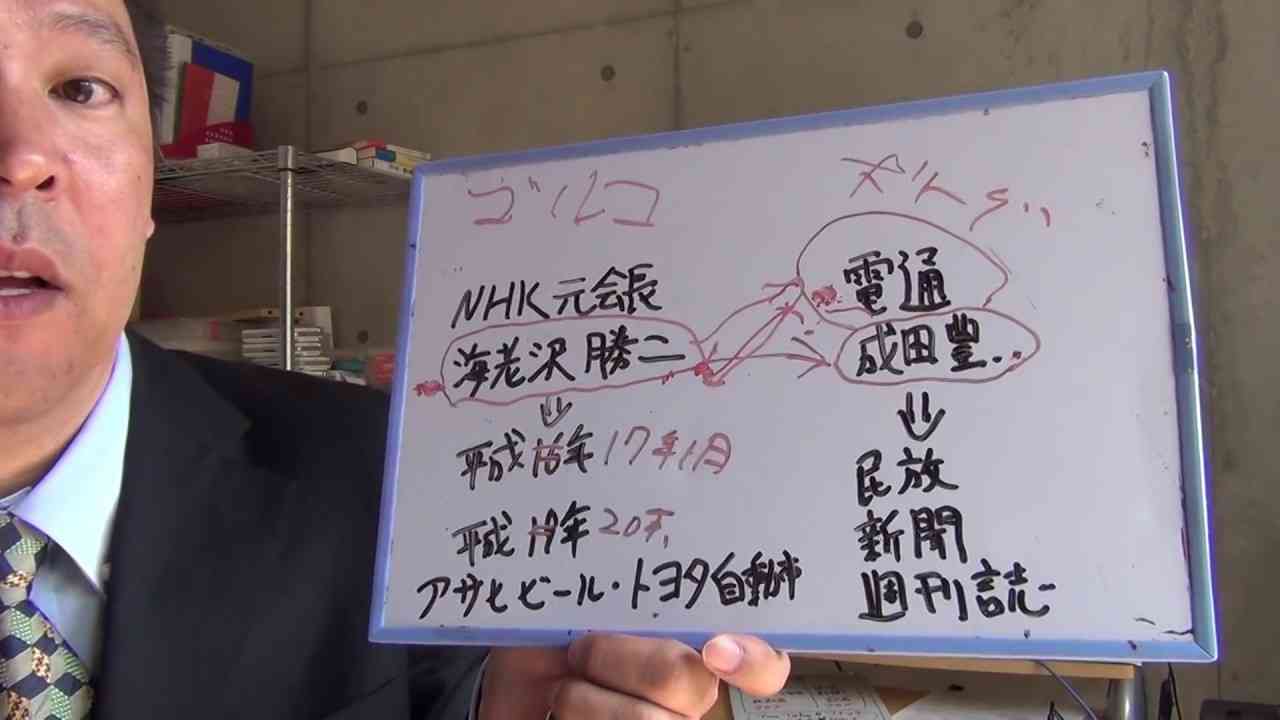 ゴルコ
NHK元会長
海老沢勝二
平成16年17年1月
平成19年20年
アサヒビール・トヨタ自動車
電通
成田豊
民放
新聞
週刊誌